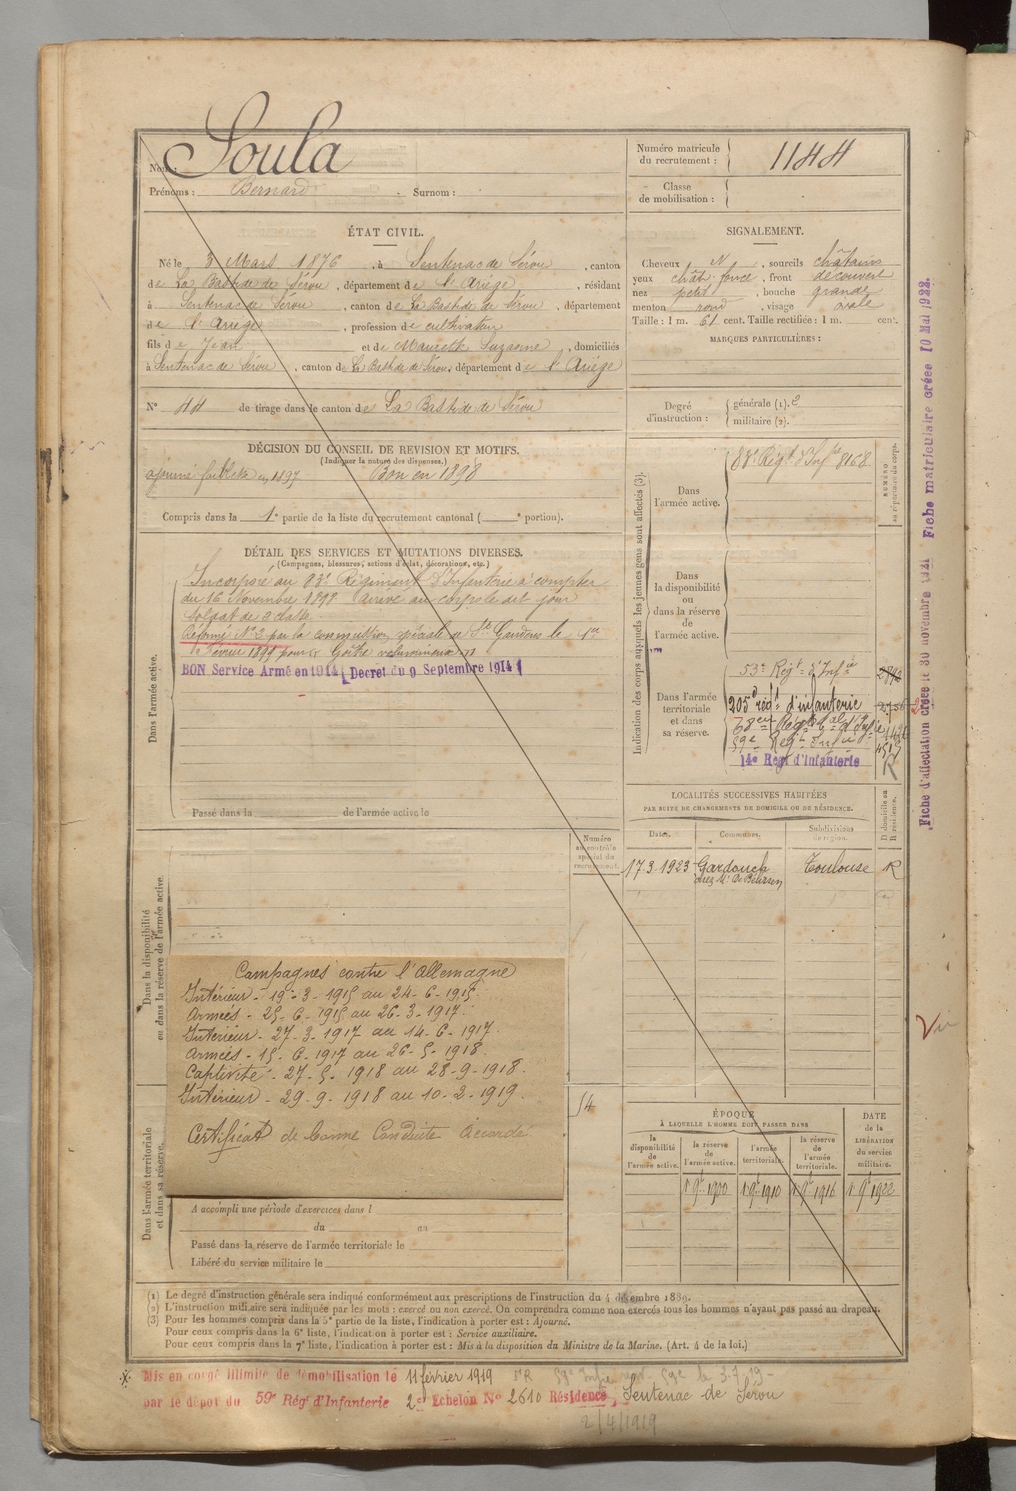 Nom : Soula
Prénoms : Bernard . Surnom :
Numéro matricule
du recrutement :
1144
Classe
de mobilisation :
ÉTAT CIVIL.
Né le 3 Mars 1876, à Sentenac de Sérou, canton
de La Bastide de Sérou, département de l'Ariège, résidant
à Sentenac de Sérou, canton de La Bastide de Sérou, département
de l'Ariège, profession de cultivateur
fils de Jean et de Maurette Suzanne, domiciliés
à Sentenac de Sérou, canton de La Bastide de Sérou, département de l'Ariège
N° 44 de tirage dans le canton de La Bastide de Sérou
SIGNALEMENT.
Cheveux N, sourcils châtains
yeux chât. foncé, front découvert
nez petit, bouche grande
menton rond, visage ovale
Taille : 1 m. 61 cent. Taille rectifiée : 1 m. cent.
MARQUES PARTICULIÈRES :
Degré
d'instruction :
générale (1). 2
militaire (2).
DÉCISION DU CONSEIL DE REVISION ET MOTIFS.
(Indiquer la nature des dispenses.)
ajourné faiblesse en 1897 Bon en 1898
Compris dans la 1e partie de la liste du recrutement cantonal ( e portion).
DÉTAIL DES SERVICES ET MUTATIONS DIVERSES.
(Campagnes, blessures, actions d'éclat, décorations, etc.)
Dans l'armée active.
Incorporé au 83e Régiment d'Infanterie à compter
du 16 Novembre 1898. Arrivé au corps le dit jour
Soldat de 2e classe
Réformé N° 2 par la commission spéciale de St Gaudens le 1er
Février 1899 pour Goitre volumineux
BON Service Armé en 1914 (Decret du 9 Septembre 1914)
Passé dans la de l'armée active le
Indication des corps auxquels les jeunes gens sont affectés (3).
NUMÉRO
au répertoire du corps.
Dans
l'armée active.
83e Régt d'Infie 8168
Dans
la disponibilité
ou
dans la réserve
de
l'armée active.
Dans l'armée
territoriale
et dans
sa réserve.
53e Régt d'Infie
205e régt d'infanterie
68e Régt tal d'Infie
59e Régt Infie
14e Régt d'Infanterie R
LOCALITÉS SUCCESSIVES HABITÉES
PAR SUITE DE CHANGEMENTS DE DOMICILE OU DE RÉSIDENCE.
Dates. Communes. Subdivisions
de région. D domicile ou
R résidence.
17 3 1923 Gardouch Toulouse R
Numéro
au contrôle
spécial du
recrutement.
Dans la disponibilité
ou dans la réserve de l'armée active.
Campagnes contre l'Allemagne
Intérieur - 19-3-1915 au 24-6-1915.
Armées - 25-6-1915 au 26-3-1917.
Intérieur - 27-3-1917 au 14-6-1917.
Armées - 15-6-1917 au 26-5-1918.
Captivité - 27-5-1918 au 28-9-1918.
Intérieur - 29-9-1918 au 10-2-1919.
Certificat de bonne Conduite Accordé
54
Dans l'armée territoriale
et dans sa réserve.
A accompli une période d'exercices dans l
du au
Passé dans la réserve de l'armée territoriale le
Libéré du service militaire le
ÉPOQUE
À LAQUELLE L'HOMME DOIT PASSER DANS
la
disponibilité
de
l'armée active.
la réserve
de
l'armée active.
l'armée
territoriale.
la réserve
de
l'armée
territoriale.
DATE
de la
LIBÉRATION
du service
militaire.
1 9bre 1900 1 9bre 1910 1 9bre 1916 1 9bre 1922
(1) Le degré d'instruction générale sera indiqué conformément aux prescriptions de l'instruction du 4 décembre 1889.
(2) L'instruction militaire sera indiquée par les mots : exercé ou non exercé. On comprendra comme non exercés tous les hommes n'ayant pas passé au drapeau.
(3) Pour les hommes compris dans la 5e partie de la liste, l'indication à porter est : Ajourné.
Pour ceux compris dans la 6e liste, l'indication à porter est : Service auxiliaire.
Pour ceux compris dans la 7e liste, l'indication à porter est : Mis à la disposition du Ministre de la Marine. (Art. 4 de la loi.)
Mis en congé illimité de démobilisation le 11 février 1919
par le dépôt du 59e Rég d'Infanterie 2e Echelon N° 2610 Résidence, Sentenac de Sérou
2/4/1919
Fiche d'affectation créée le 30 novembre 1921 Fiche matriculaire créée 10 Mai 1922.
Vu